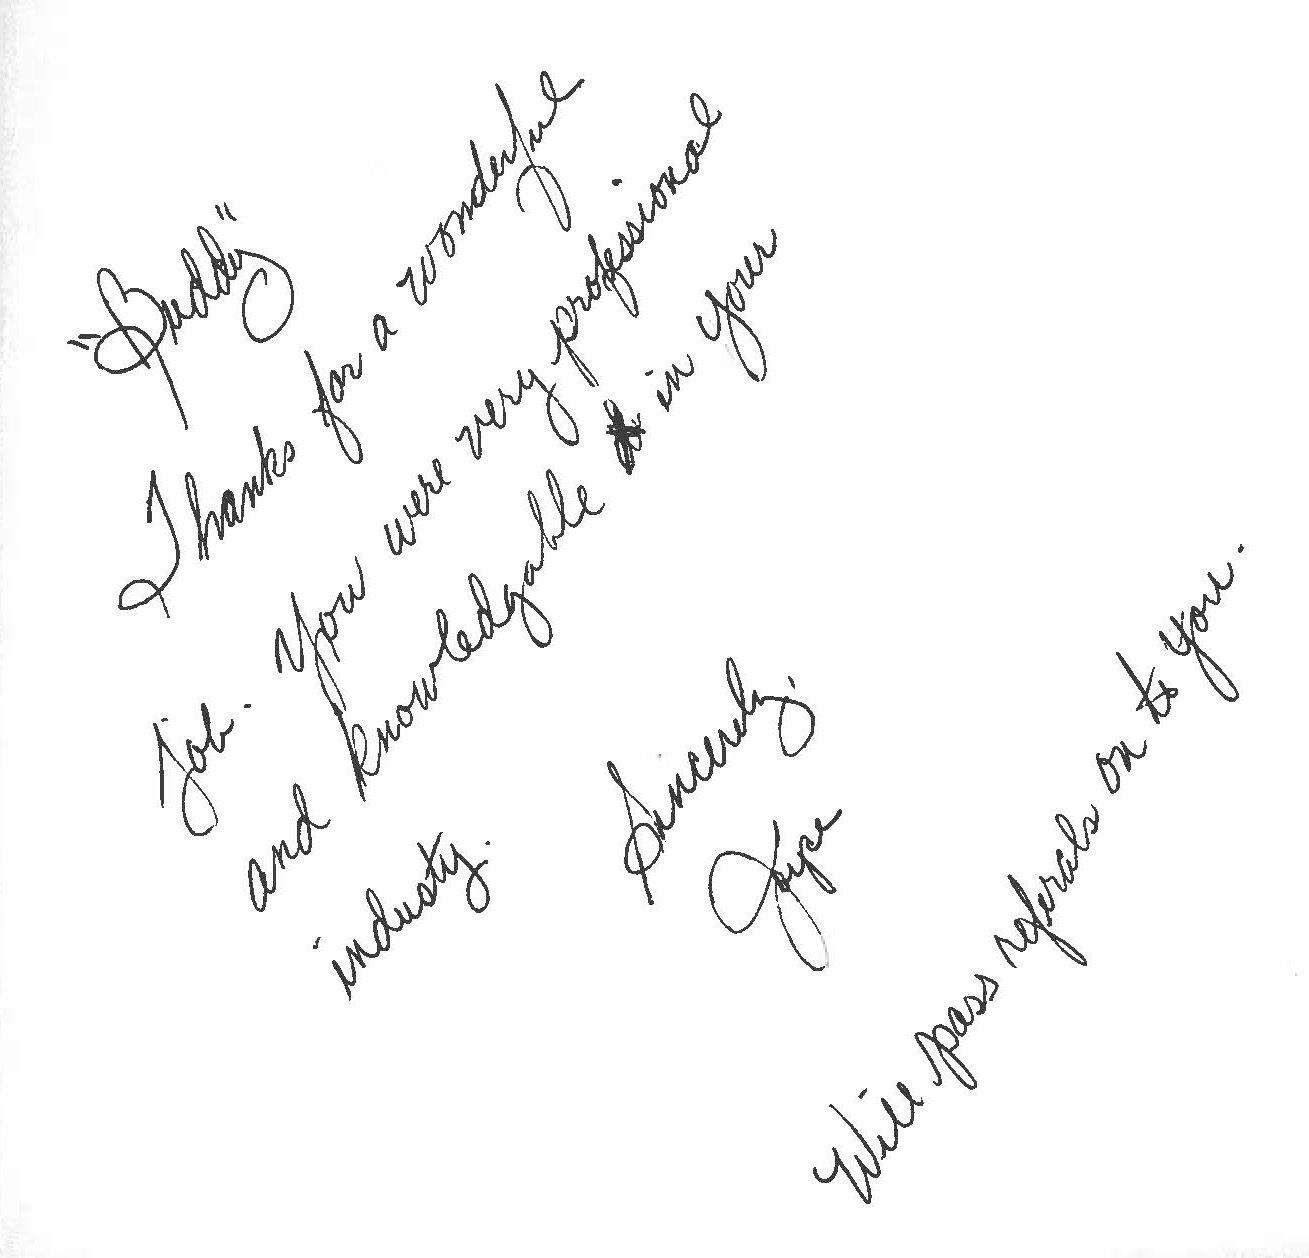 "Buddy"
Thanks for a wonderful
job. You were very professional
and knowledgable in your
industy.
Sincerely,
Joyce
Will pass referals on to you.